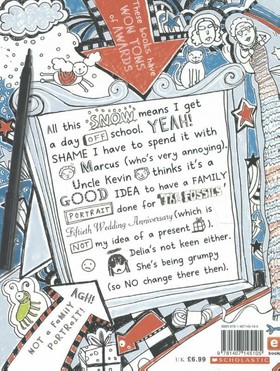 These books have
WON TONS
of AWARDS
All this SNOW means I get
a day OFF school. YEAH!
SHAME I have to spend it with
Marcus (who's very annoying).
Uncle Kevin thinks it's a
GOOD IDEA to have a FAMILY
PORTRAIT done for 'THE FOSSILS'
Fiftieth Wedding Anniversary (which is
NOT my idea of a present).
Delia's not keen either.
She's being grumpy
(so NO change there then).
AGH!
NOT A FAMILY
PORTRAIT!
UK £6.99
SCHOLASTIC
9 781407 145105
e
book